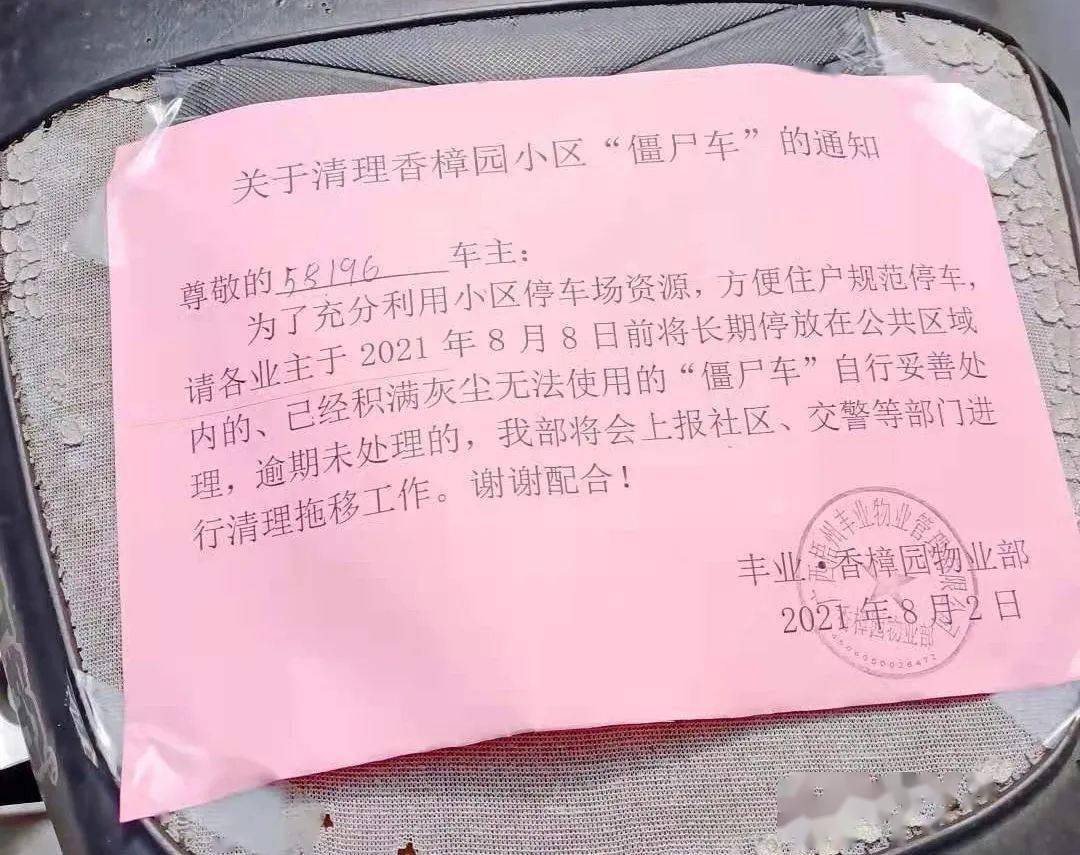 关于清理香樟园小区“僵尸车”的通知
尊敬的58196车主：
为了充分利用小区停车场资源，方便住户规范停车，
请各业主于2021年8月8日前将长期停放在公共区域
内的、已经积满灰尘无法使用的“僵尸车”自行妥善处
理，逾期未处理的，我部将会上报社区、交警等部门进
行清理拖移工作。谢谢配合！
丰业·香樟园物业部
2021年8月2日
州丰业物业管
香樟园物业部